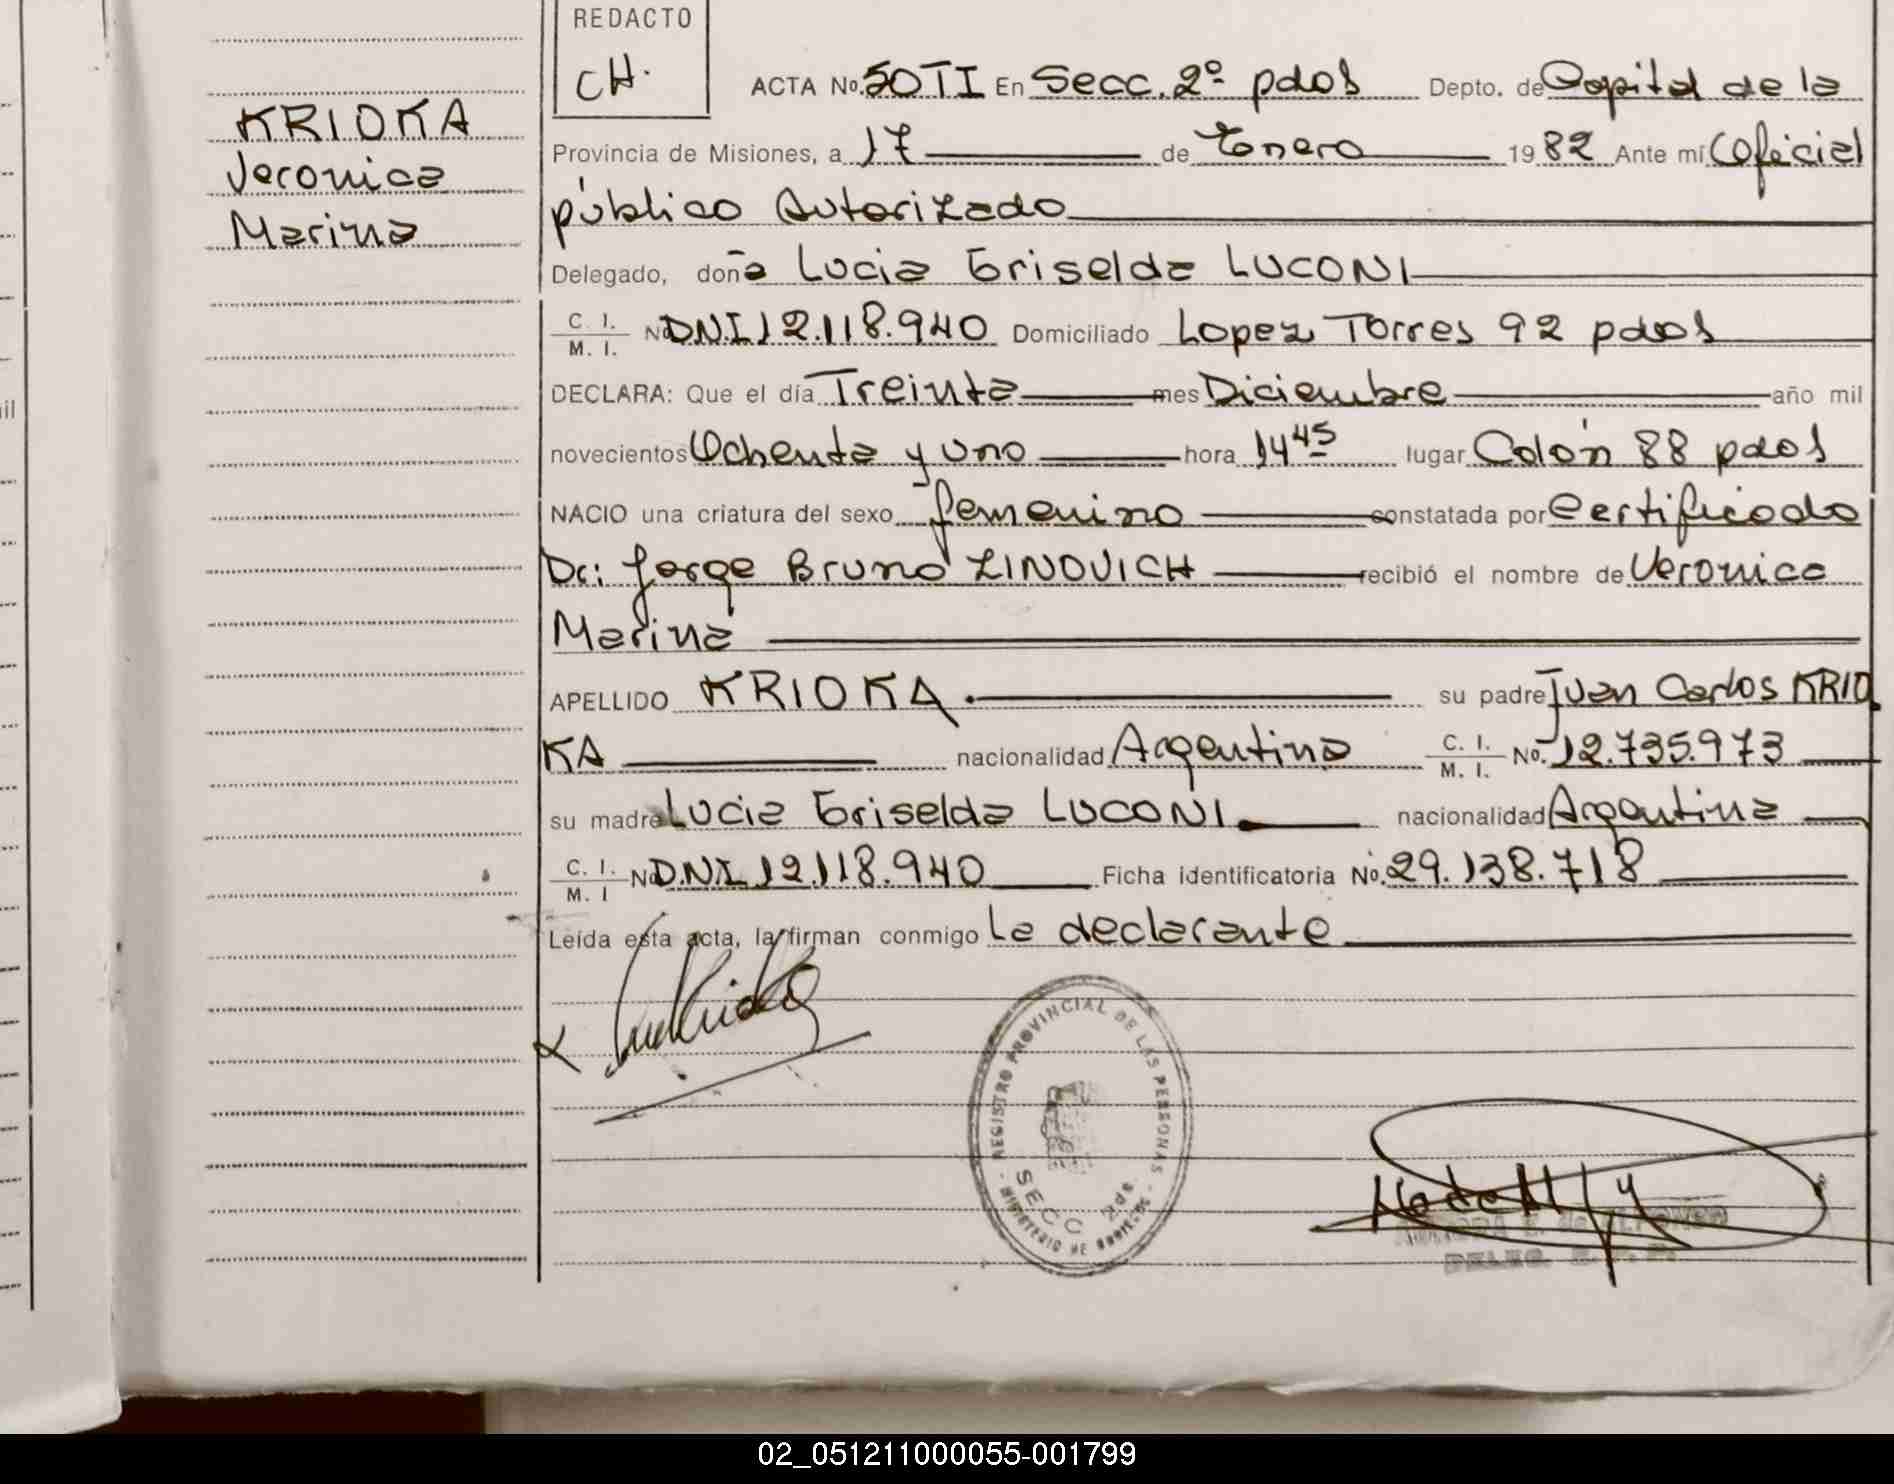 REDACTO
CH.
KRIOKA
Veronica
Marina
ACTA No. 50TI En Secc. 2º pdas Depto. de Capital de la
Provincia de Misiones, a 17 de Enero 1982 Ante mí Oficial
público Autorizado
Delegado, doña Lucia Griselda LUCONI
C. I.
M. I. No DNI 12.118.940 Domiciliado Lopez Torres 92 pdas
DECLARA: Que el día Treinta mes Diciembre año mil
novecientos Ochenta y uno hora 14 45 lugar Colón 88 pdas
NACIO una criatura del sexo femenino constatada por Certificado
Dr: Jorge Bruno ZINOVICH recibió el nombre de Veronica
Marina
APELLIDO KRIOKA. su padre Juan Carlos KRIO
KA nacionalidad Argentina C. I.
M. I. No. 12.735.973
su madre Lucia Griselda LUCONI. nacionalidad Argentina
C. I.
M. I No D.N.I. 12.118.940 Ficha identificatoria No. 29.138.718
Leída esta acta, la firman conmigo La declarante
REGISTRO PROVINCIAL DE LAS PERSONAS
SECC 2da.
MINISTERIO DE GOBIERNO
02_051211000055-001799